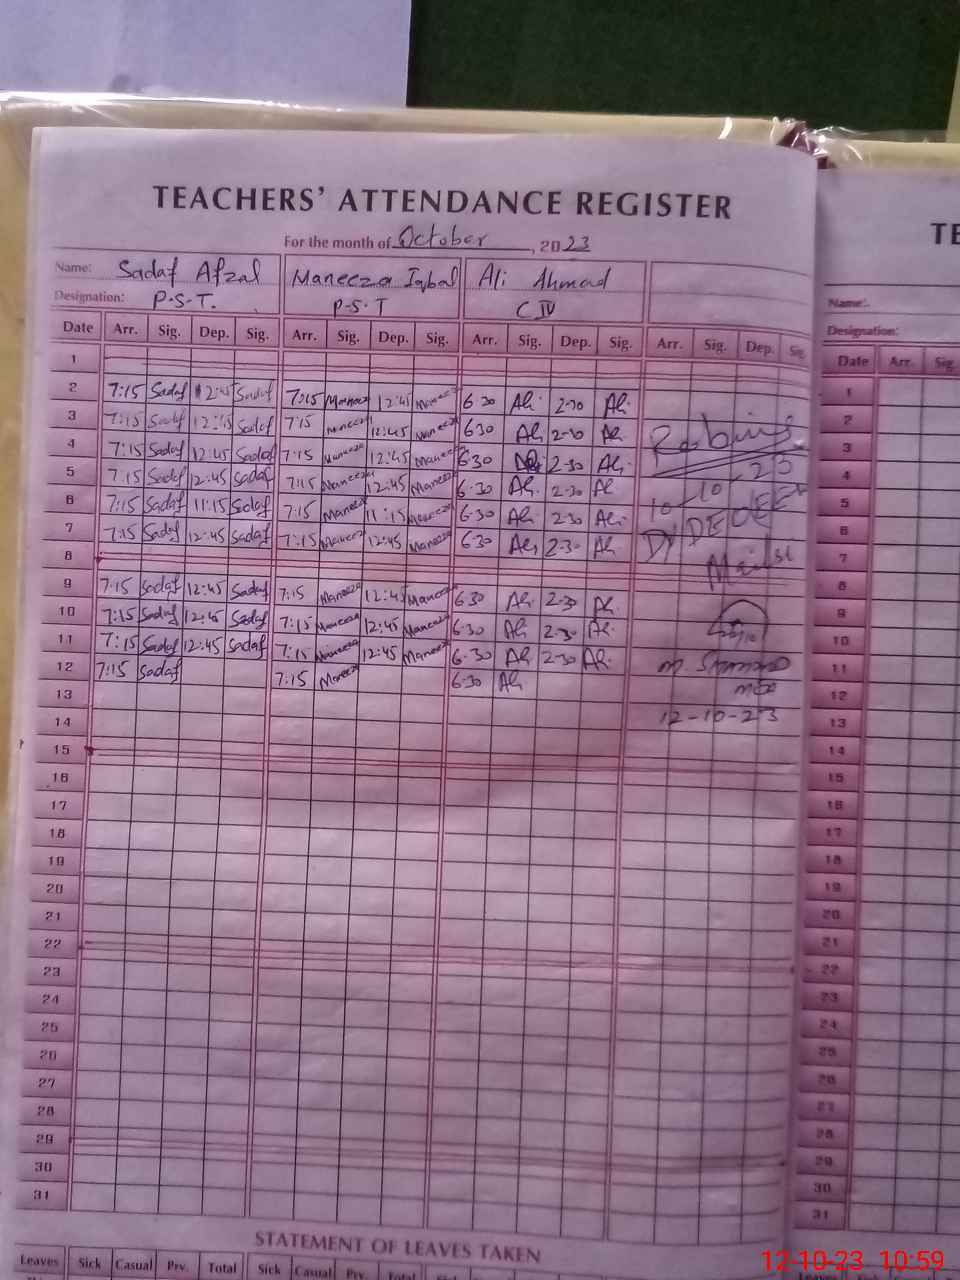 TEACHERS' ATTENDANCE REGISTER
For the month of October, 2023
Name: Sadaf Afzal Maneeza Iqbal Ali Ahmad
Designation: P.S.T. P.S.T C IV
Date Arr. Sig. Dep. Sig. Arr. Sig. Dep. Sig. Arr. Sig. Dep. Sig. Arr. Sig. Dep. Sig
1
2 7:15 Sadaf 12:45 Sadaf 7:15 Maneeza 12:45 Maneeza 6:30 Ali 2:30 Ali
3 7:15 Sadaf 12:45 Sadaf 7:15 Maneeza 12:45 Maneeza 6:30 Ali 2:30 Ali
4 7:15 Sadaf 12:45 Sadaf 7:15 Maneeza 12:45 Maneeza 6:30 Ali 2:30 Ali
5 7:15 Sadaf 12:45 Sadaf 7:15 Maneeza 12:45 Maneeza 6:30 Ali 2:30 Ali
6 7:15 Sadaf 11:15 Sadaf 7:15 Maneeza 11:15 Maneeza 6:30 Ali 2:30 Ali
7 7:15 Sadaf 12:45 Sadaf 7:15 Maneeza 12:45 Maneeza 6:30 Ali 2:30 Ali
8
9 7:15 Sadaf 12:45 Sadaf 7:15 Maneeza 12:45 Maneeza 6:30 Ali 2:30 Ali
10 7:15 Sadaf 12:45 Sadaf 7:15 Maneeza 12:45 Maneeza 6:30 Ali 2:30 Ali
11 7:15 Sadaf 12:45 Sadaf 7:15 Maneeza 12:45 Maneeza 6:30 Ali 2:30 Ali
12 7:15 Sadaf 7:15 Maneeza 6:30 Ali
13
14
15
16
17
18
19
20
21
22
23
24
25
26
27
28
29
30
31
10-10-23
12-10-23
STATEMENT OF LEAVES TAKEN
Leaves Sick Casual Prv. Total Sick Casual Prv. Total Sick Casual Prv. Total
TE
Name:
Designation:
Date Arr. Sig.
1
2
3
4
5
6
7
8
9
10
11
12
13
14
15
16
17
18
19
20
21
22
23
24
25
26
27
28
29
30
31
Leaves
12-10-23 10:59